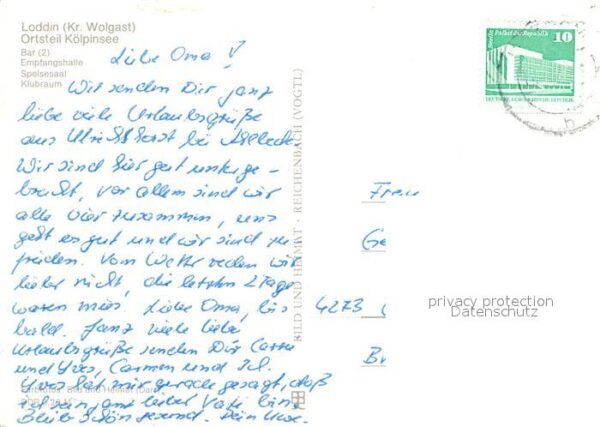 Loddin (Kr. Wolgast)
Ortsteil Kölpinsee
Bar (2)
Empfangshalle
Speisesaal
Klubraum
Liebe Oma!
Wir senden Dir ganz
liebe viele Urlaubsgrüße
aus bei
Wir sind hier gut unterge-
bracht, vor allem sind wir
alle vier zusammen, uns
geht es gut und wir sind zu
frieden. Vom Wetter reden wir
lieber nicht, die letzten 2 Tage
waren mies. Liebe Oma, bis
bald. Ganz viele liebe
Urlaubsgrüße senden Dir
und Yves, Carmen und
Yves hat mir gerade gesagt, daß
ich sein ganz lieber Vati bin.
Bleib schön gesund. Dein Uwe.
BILD UND HEIMAT · REICHENBACH (VOGTL)
Berlin Palast der Republik
10
DEUTSCHE DEMOKRATISCHE REPUBLIK
Frau
Ge
4273
Br
privacy protection
Datenschutz